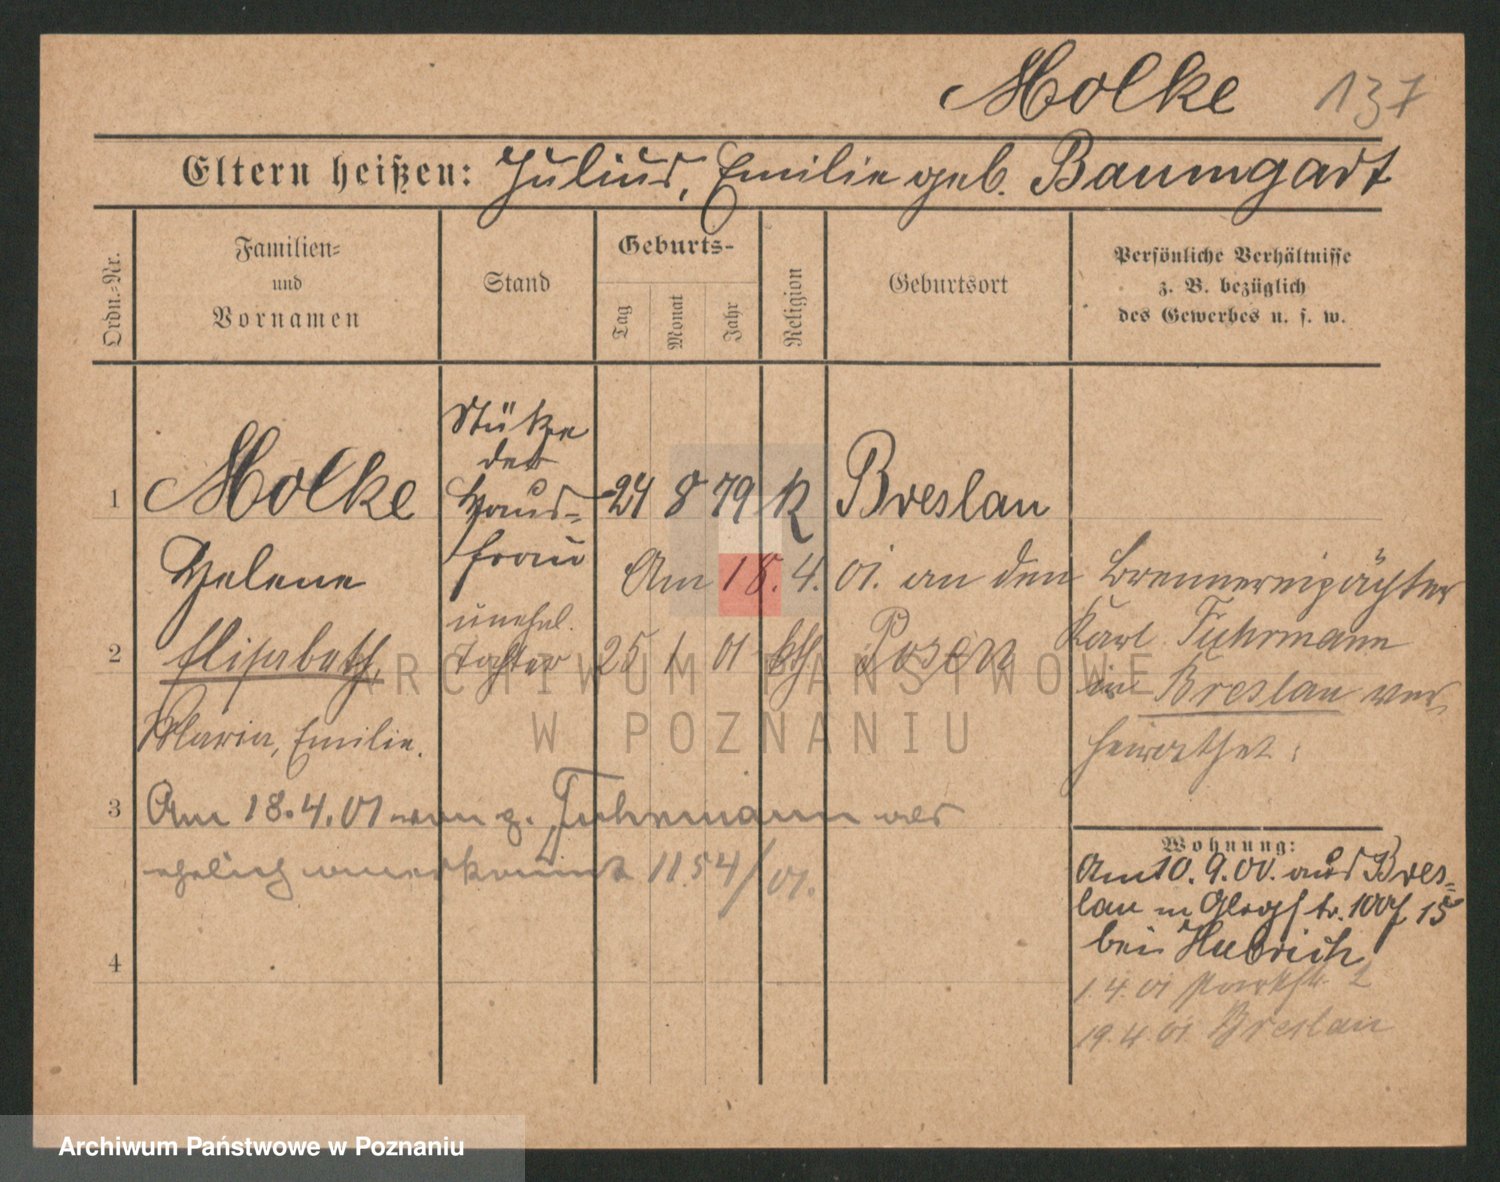 Molke 137
Eltern heißen: Julius, Emilie geb. Baumgart
Ordn.-Nr.
Familien-
und
Vornamen
Stand
Geburts-
Tag
Monat
Jahr
Religion
Geburtsort
Persönliche Verhältnisse
z. B. bezüglich
des Gewerbes u. s. w.
Stütze
der
1 Molke Haus- 24 8 79 K Breslau
Helene frau
Am 18. 4. 01. an den Brennereipächter
unehel.
Karl Fuhrmann
2 Elisabeth, Tochter 25 1 01 kth Posen
in Breslau ver-
Maria, Emilie.
heirathet.
3 Am 18.4.01 von p. Fuhrmann als
ehelich anerkannt 1154/01.
4
Wohnung:
Am 10. 9. 00. aus Bres-
lau n Glogstr. 100f 15
bei Hubrich
1.4.01 Parkstr. 2
19.4.01 Breslau
ARCHIWUM PAŃSTWOWE
W POZNANIU
Archiwum Państwowe w Poznaniu